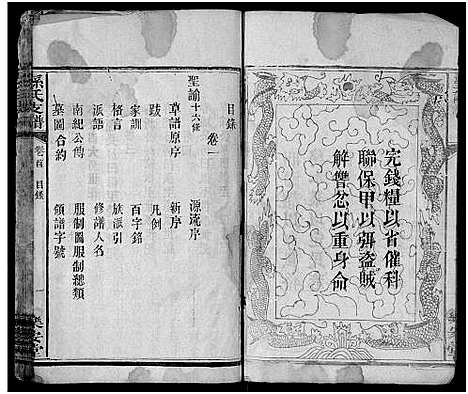 完錢糧以省催科
聯保甲以弭盜賊
解讐忿以重身命
目錄
卷一
聖諭十六條
源流序
草譜原序
新序
跋
凡例
家訓
百字銘
格言
族派引
派語
修譜人名
南紀公傳
服制圖服制總類
墓圖合約
領譜字號
孫氏支譜
卷首
目錄
一
樂安堂